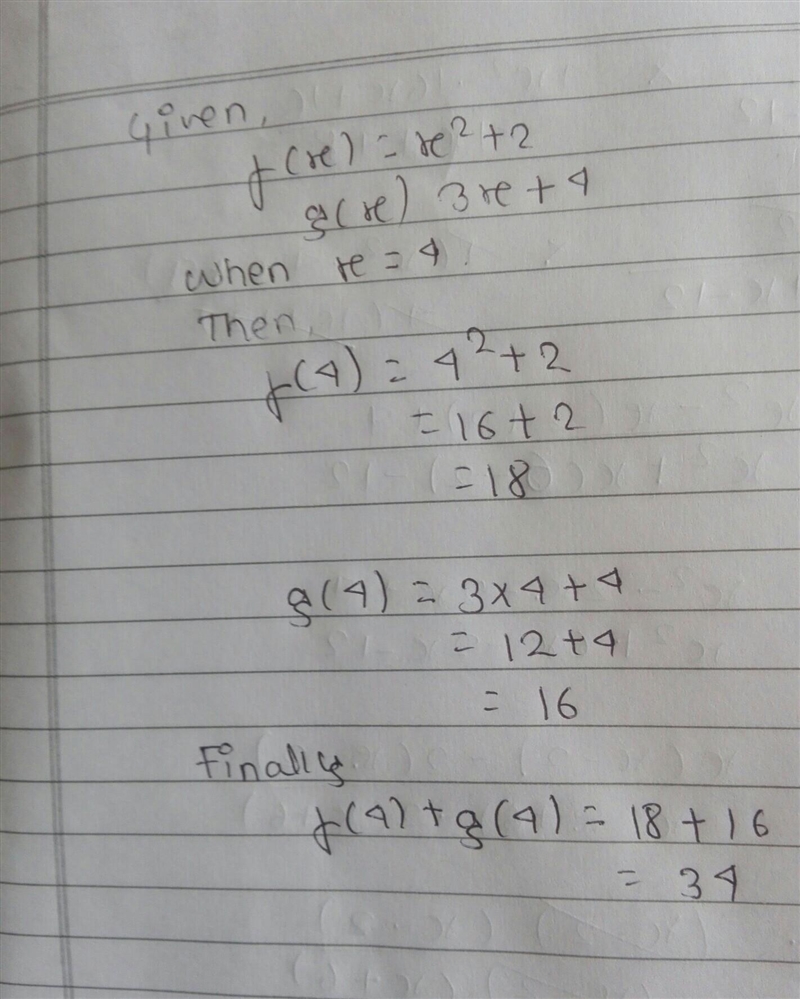 Given,
f(x) = x² + 2
g(x) 3x + 4
When x = 4.
Then,
f(4) = 4² + 2
= 16 + 2
= 18
g(4) = 3 × 4 + 4
= 12 + 4
= 16
Finally
f(4) + g(4) = 18 + 16
= 34